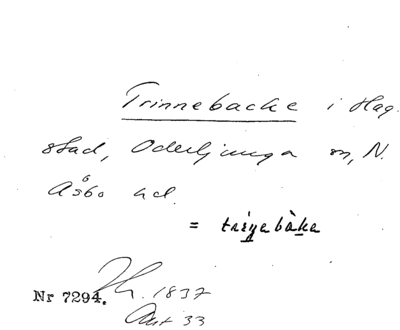 Trinnebacke i Hag
stad, Oderljunga sn, N.
Åsbo hd.
= triṉebàka
Nr 7294. 1837
33